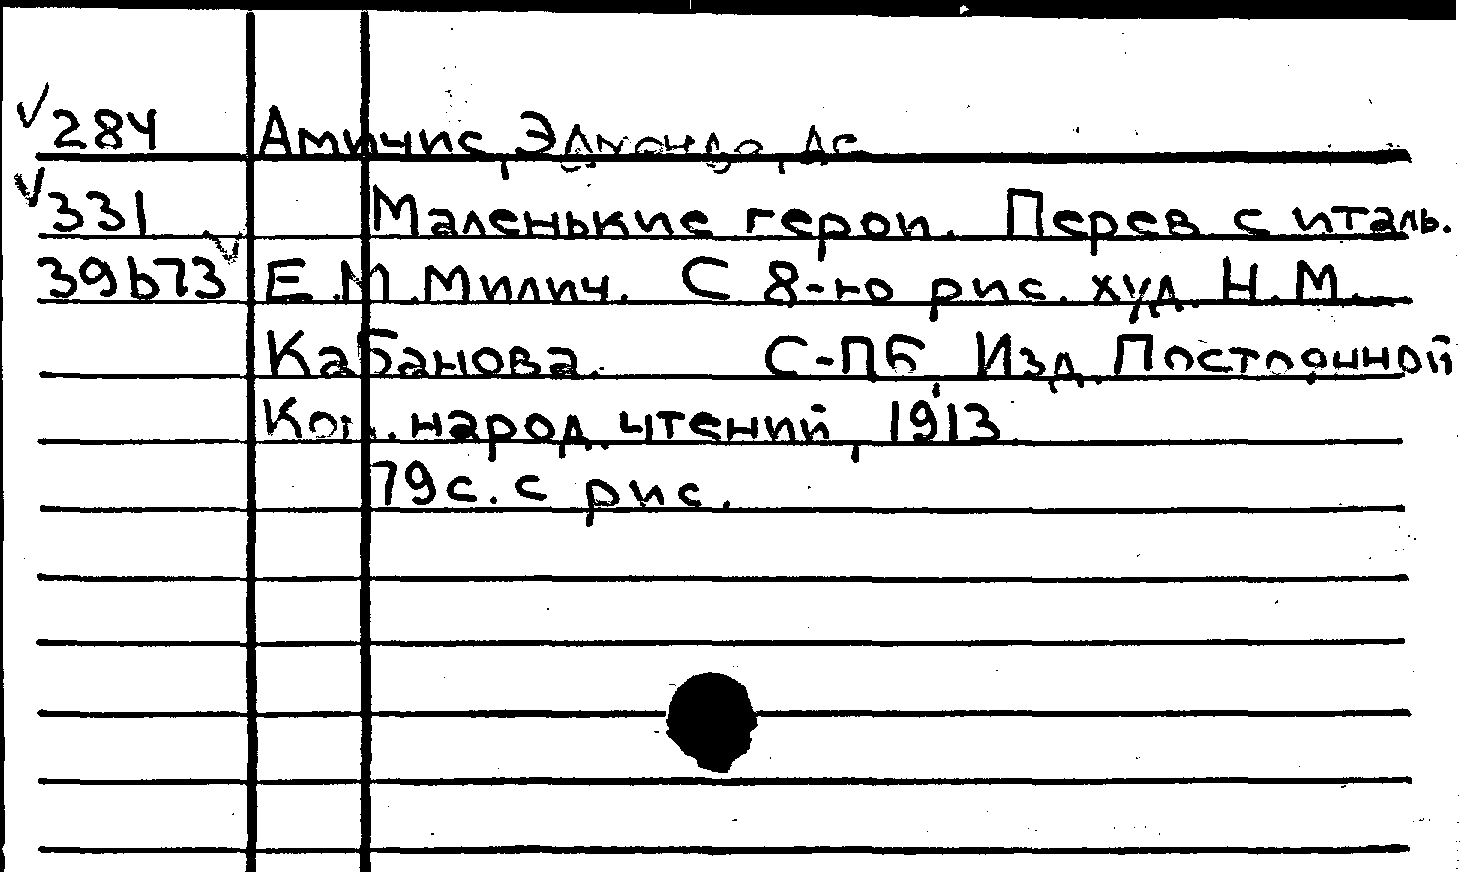 √284 Амичис, Эдмондо, де
√331 Маленькие герои. Перев с италь.
39b73 Е.М.Милич. С 8-ю рис. худ. Н.М.
Кабанова. С-Пб, Изд. Постоянной
Ком. народ. чтений, 1913
79с. с рис.